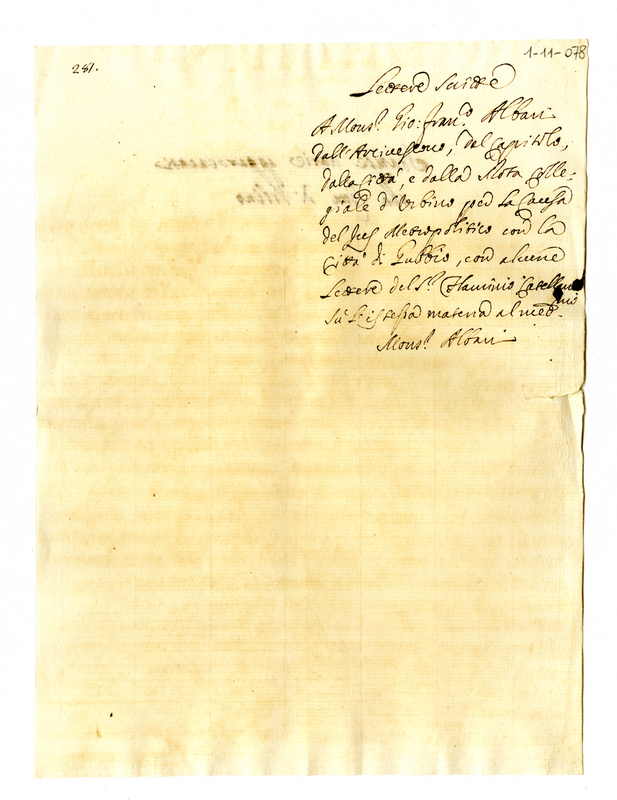 1-11-078
281.
Lettere scritte
A Mons.r Gio: Fran.co Albani
dall'Arcivescovo, dal Capitolo,
dalla Città, e dalla Rota Colle-
giale d'Urbino per la Causa
del Jus Metropolitico con la
Città di Gubbio, con alcune
Lettere del S.r Flaminio Catellani
su l'istessa materia al med.mo
Mons.r Albani